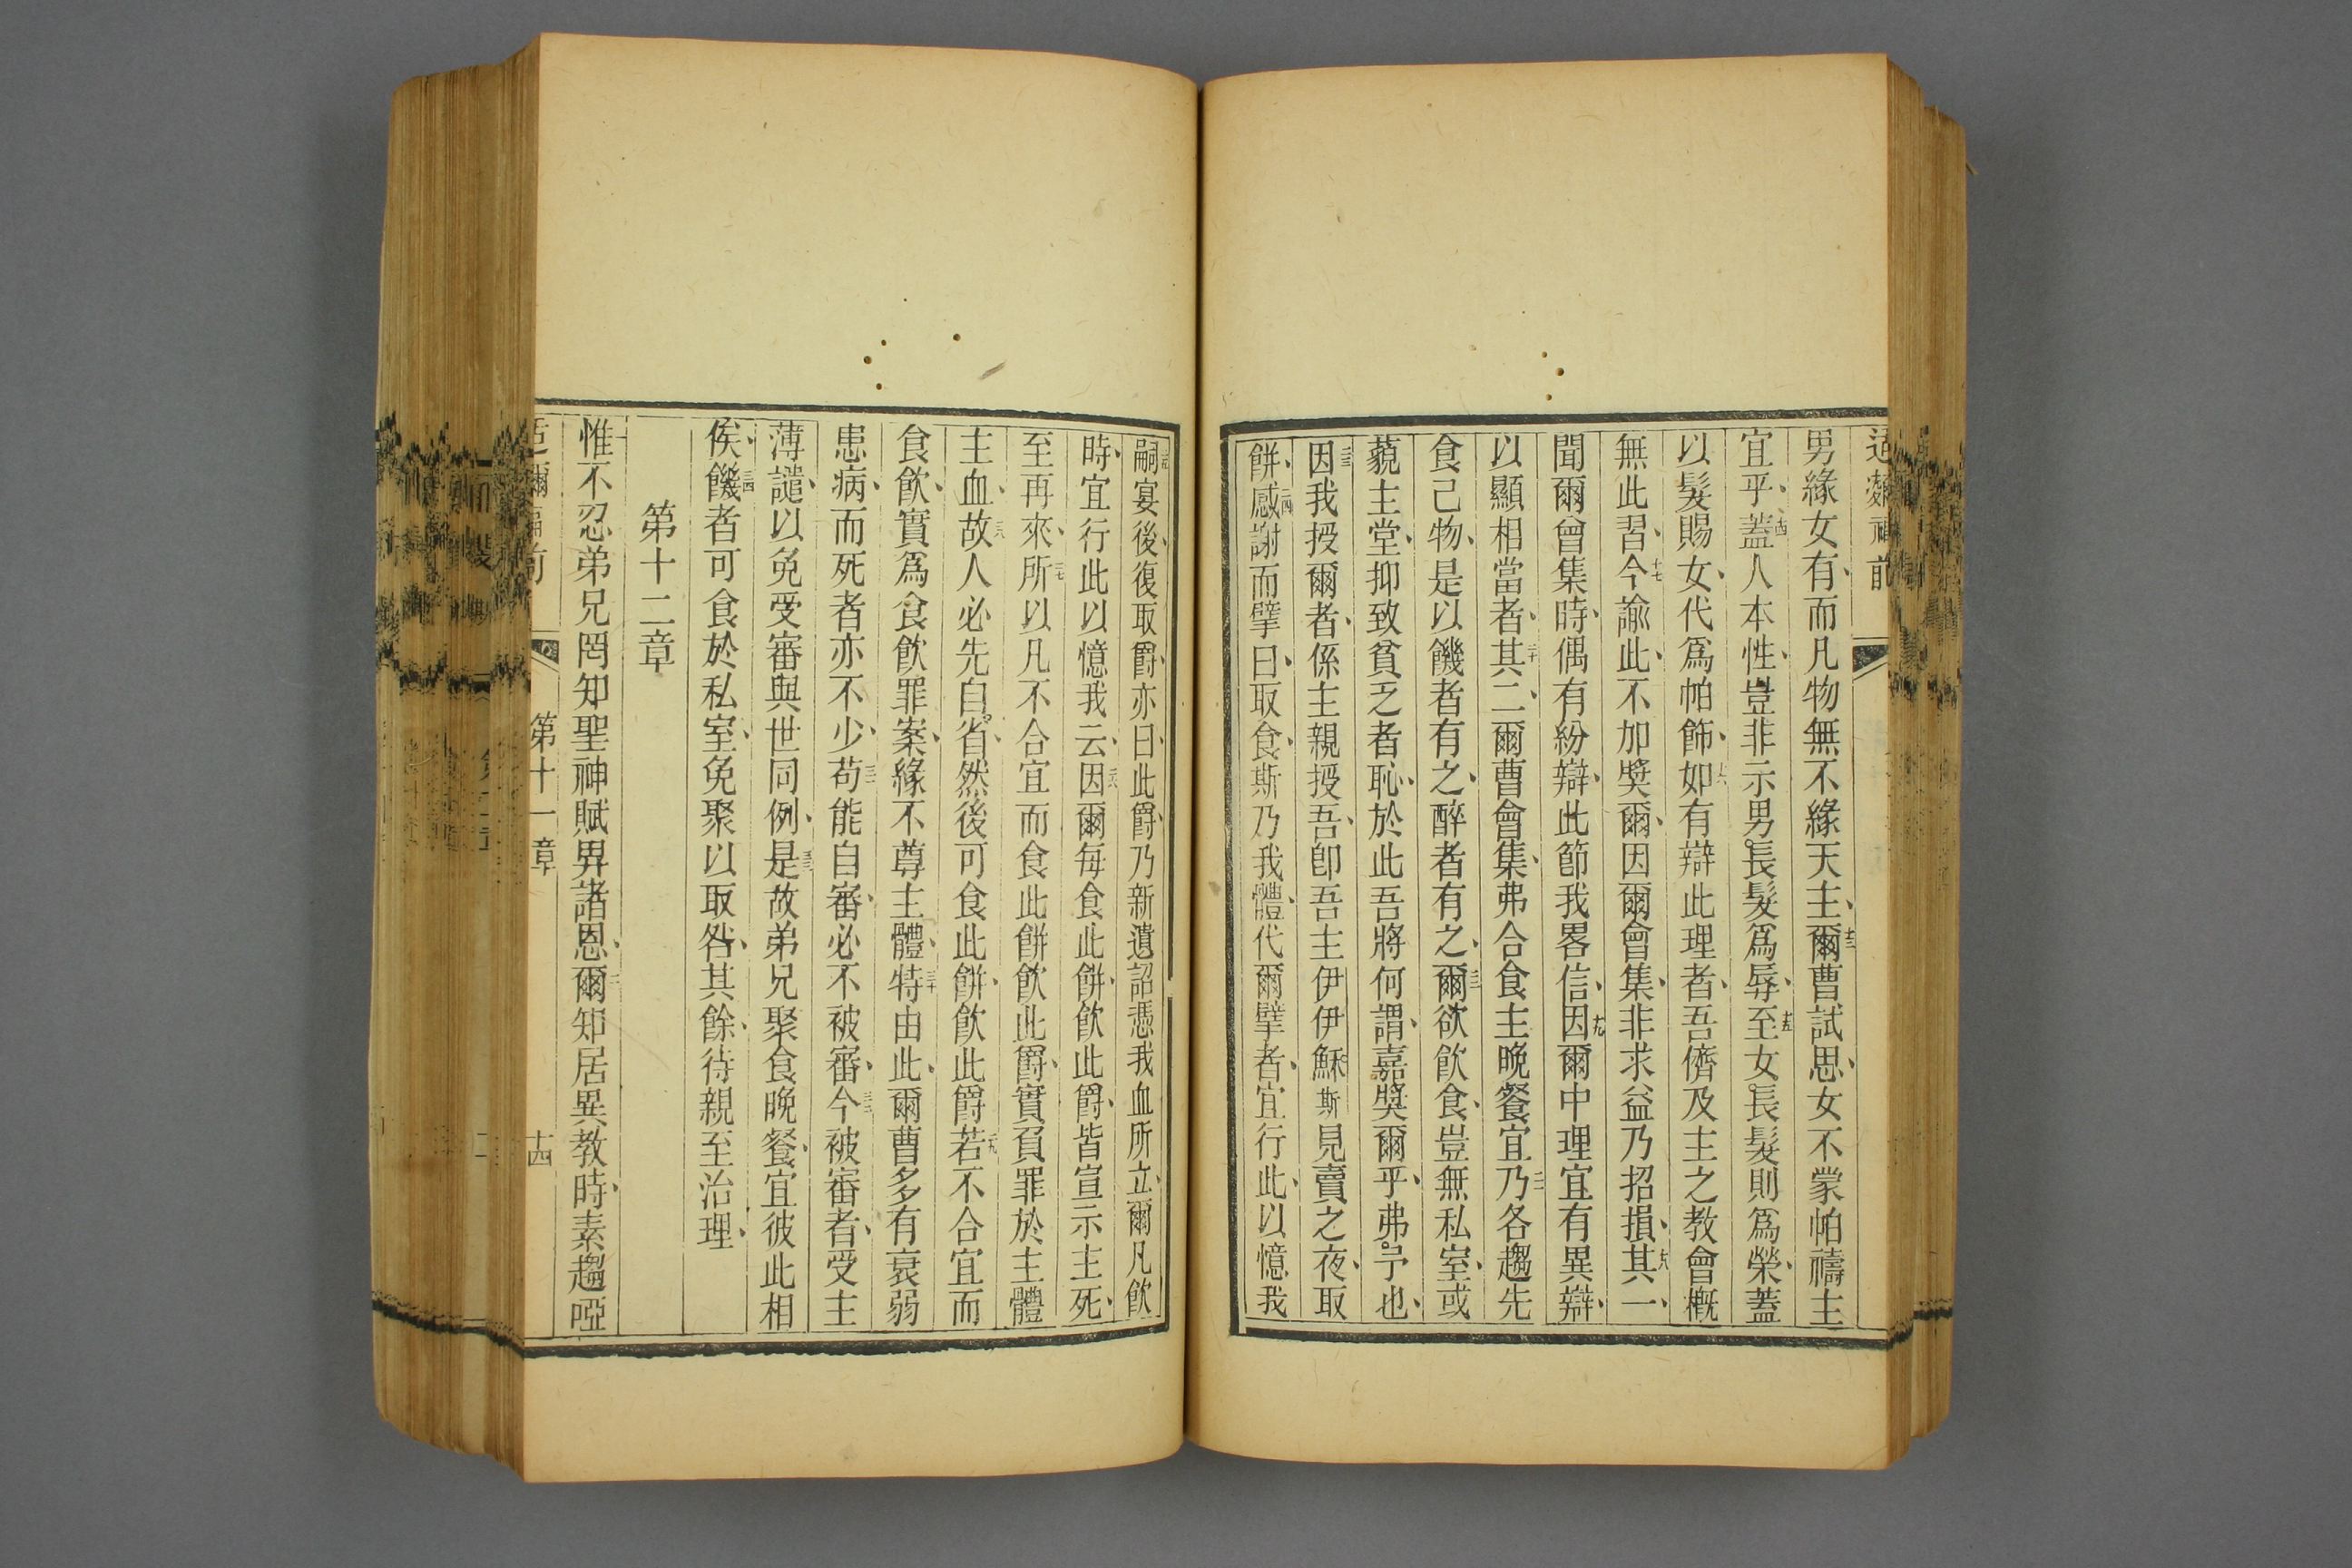 男緣女有而凡物無不緣天主爾曹試思女不蒙帕禱主
宜乎蓋人本性豈非示男長髮爲辱至女長髮則爲榮蓋
以髮賜女代爲帕飾如有辯此理者吾儕及主之教會槪
無此習今諭此不加獎爾因爾會集非求益乃招損其一
聞爾會集時偶有紛辯此節我畧信因爾中理宜有異辯
以顯相當者其二爾曹會集弗合食主晚餐宜乃各趨先
食己物是以饑者有之醉者有之爾欲飮食豈無私室或
藐主堂抑致貧乏者恥於此吾將何謂嘉獎爾乎弗予也
因我授爾者係主親授吾卽吾主伊伊穌斯見賣之夜取
餠感謝而擘曰取食斯乃我體代爾擘者宜行此以憶我
嗣宴後復取爵亦曰此爵乃新遺詔憑我血所立爾凡飮
時宜行此以憶我云因爾每食此餠飮此爵皆宣示主死
至再來所以凡不合宜而食此餠飮此爵實負罪於主體
主血故人必先自省然後可食此餠飮此爵若不合宜而
食飮實爲食飮罪案緣不尊主體特由此爾曹多有衰弱
患病而死者亦不少苟能自審必不被審今被審者受主
薄譴以免受審與世同例是故弟兄聚食晚餐宜彼此相
俟饑者可食於私室免聚以取咎其餘待親至治理
第十二章
惟不忍弟兄罔知聖神賦畀諸恩爾知居異教時素趨啞
第十一章
十四